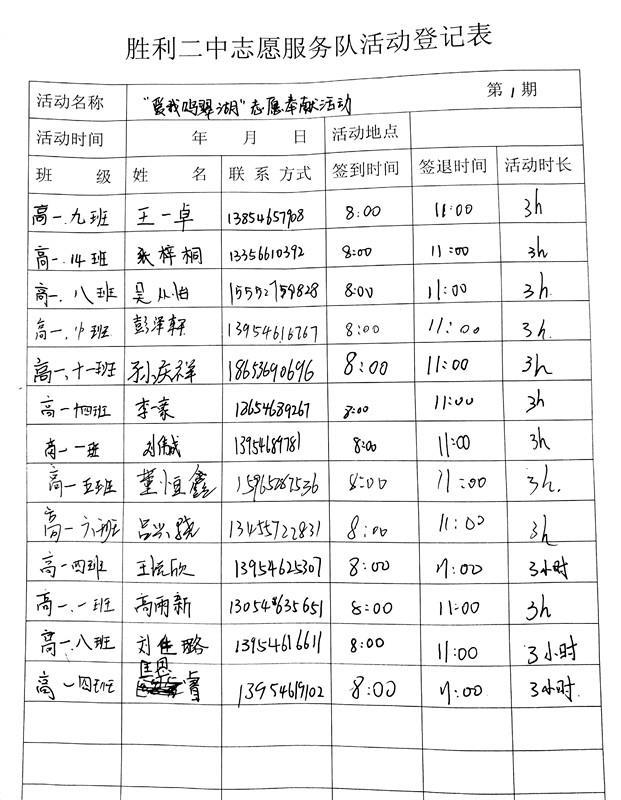 胜利二中志愿服务队活动登记表
活动名称 "爱我鸣翠湖"志愿奉献活动 第1期
活动时间 年 月 日 活动地点
班 级 姓 名 联 系 方式 签到时间 签退时间 活动时长
高一.九班 王一卓 13854657908 8:00 11:00 3h
高一.14班 张梓桐 13356610392 8:00 11:00 3h
高一.八班 吴从怡 15552759828 8:00 11:00 3h.
高一. 班 彭泽轩 13954616767 8:00 11:00 3h.
高一、十一班 孙庆祥 18653690696 8:00 11:00 3h
高一十四班 李豪 18654689267 8:00 11:00 3h
高一一班 刘伟成 13954689781 8:00 11:00 3h
高一五班 董恒鑫 15965287536 8:00 11:00 3h.
高一六班 吕兴骁 13455722831 8:00 11:00 3h
高一四班 王 欣 13954625307 8:00 11:00 3小时
高一.一班 高雨新 13054635651 8:00 11:00 3h
高一.八班 刘佳璐 13954616611 8:00 11:00 3小时
高一四班 睿 13954619102 8:00 11:00 3小时